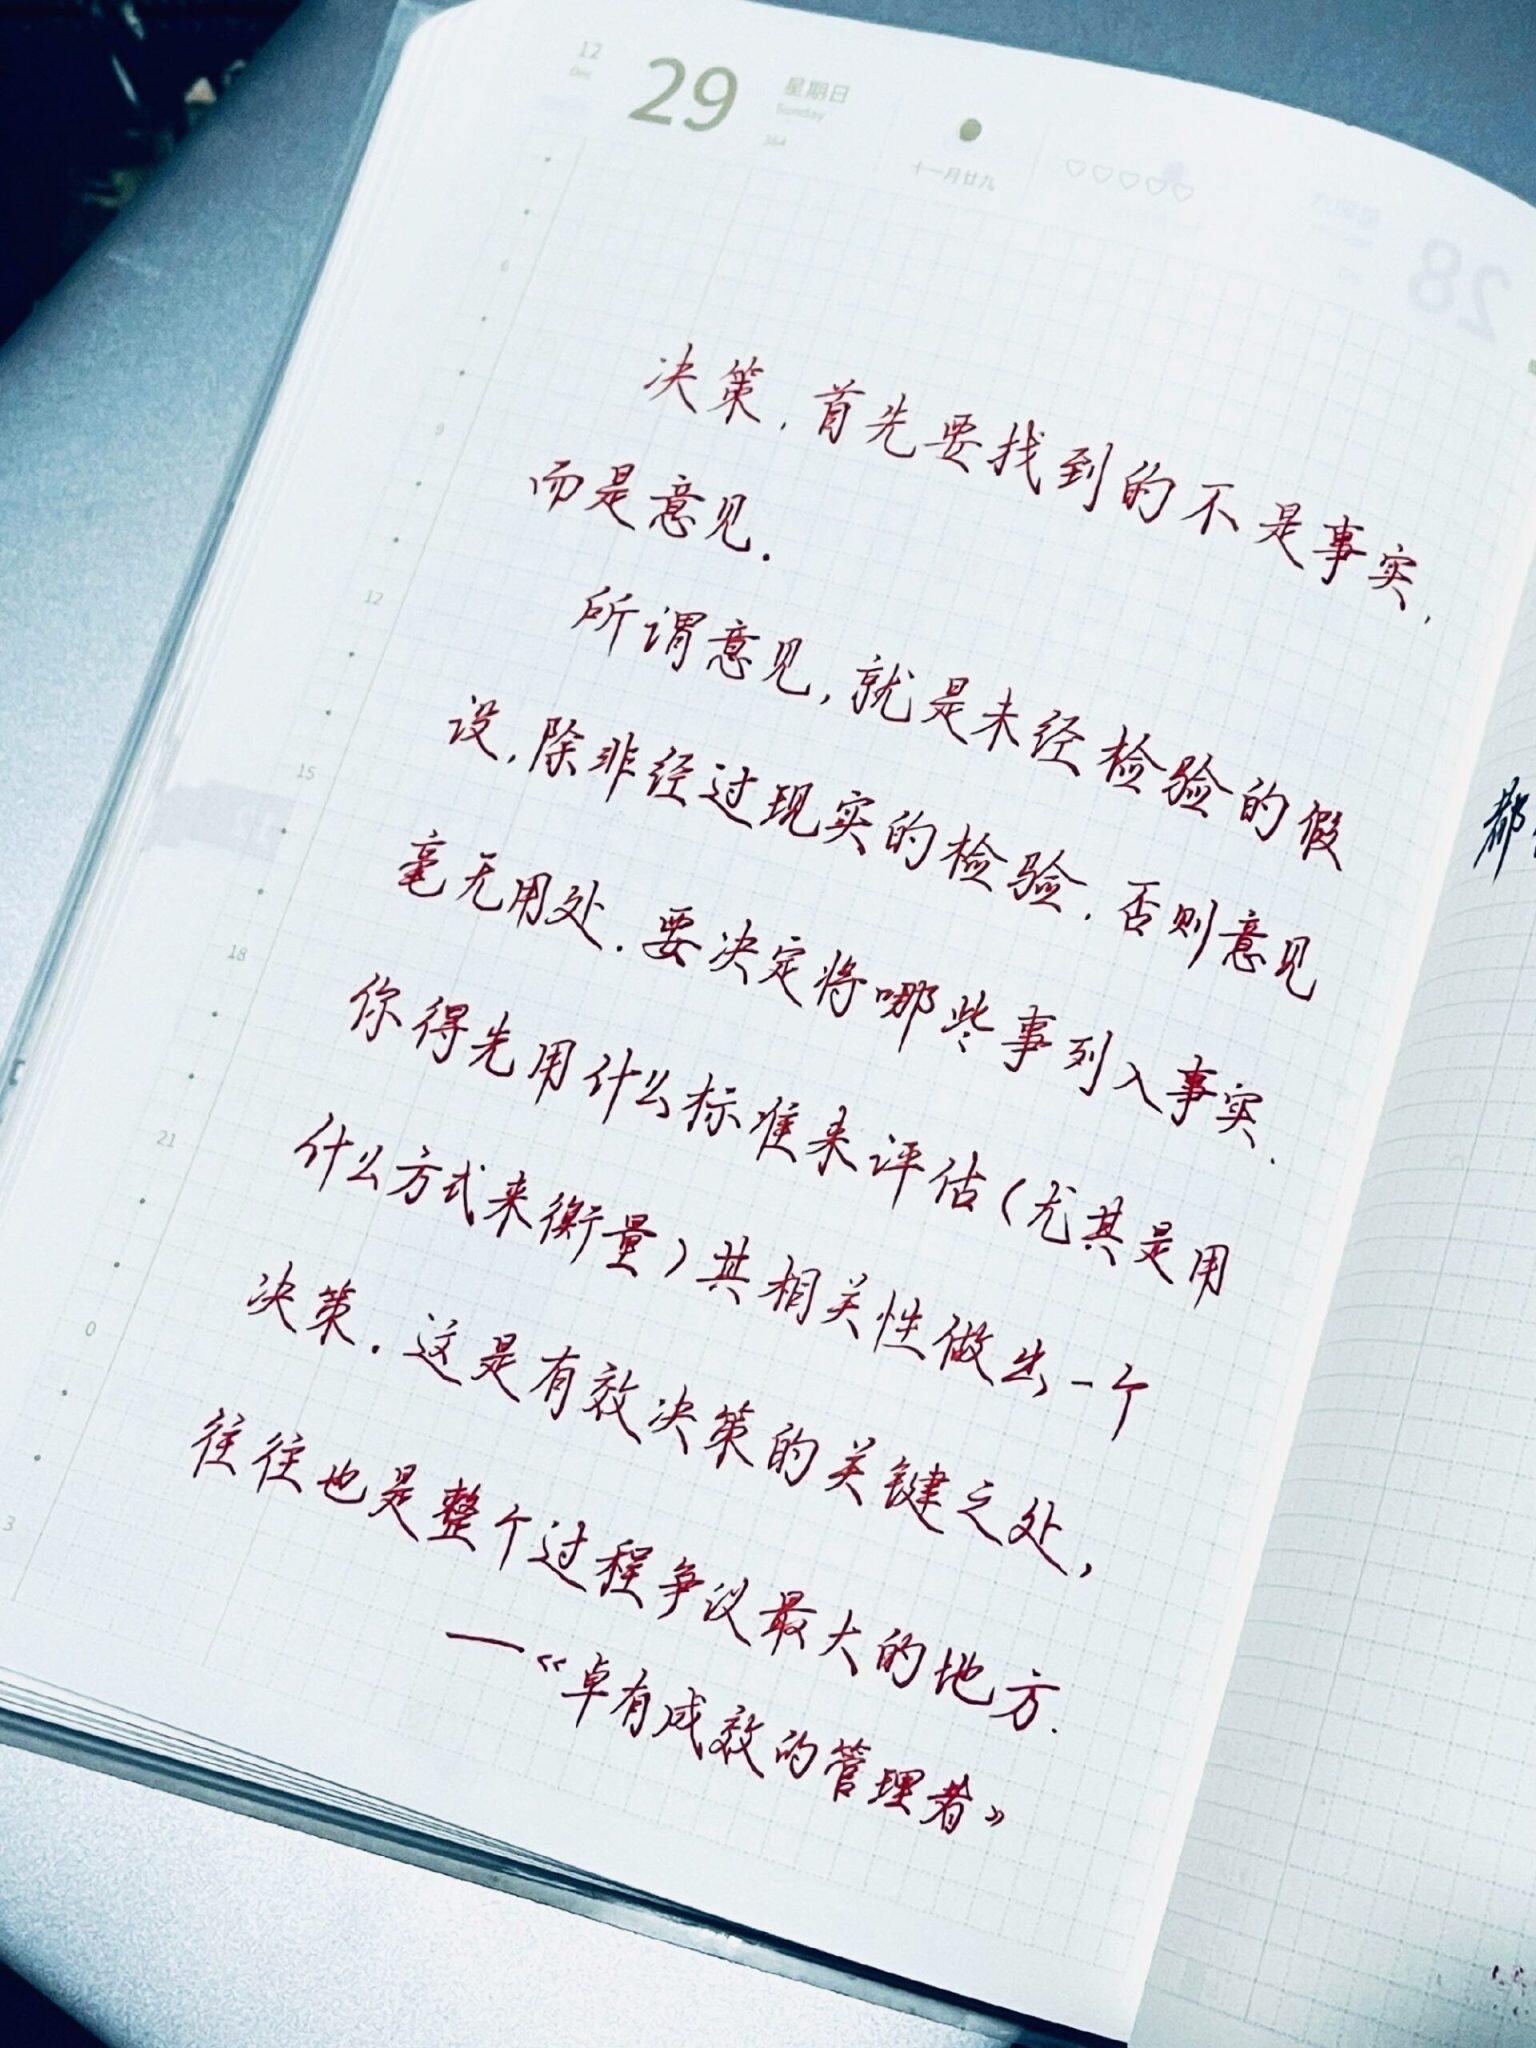 12
Dec
29
星期日
Sunday
364
十一月廿九
28
决策，首先要找到的不是事实，
而是意见.
所谓意见，就是未经检验的假
设，除非经过现实的检验，否则意见
毫无用处.要决定将哪些事列入事实.
你得先用什么标准来评估(尤其是用
什么方式来衡量)其相关性做出一个
决策.这是有效决策的关键之处，
往往也是整个过程争议最大的地方.
—《卓有成效的管理者》
6
9
12
15
18
21
0
3
都